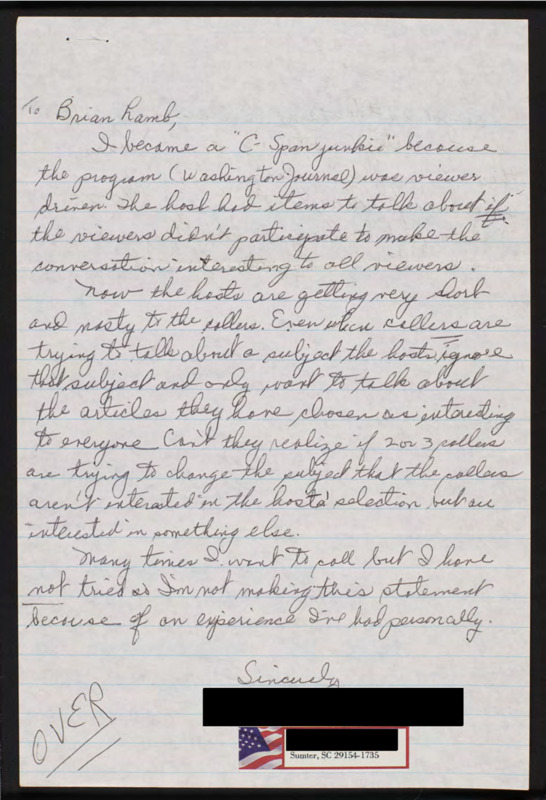 To Brian Lamb,
I became a "C-Span junkie" because
the program (Washington Journal) was viewer
driven. The host had items to talk about if
the viewers didn't participate to make the
conversation interesting to all viewers.
Now the hosts are getting very short
and nasty to the callers. Even when callers are
trying to talk about a subject the hosts ignore
that subject and only want to talk about
the articles they have chosen as interesting
to everyone. Can't they realize if 2 or 3 callers
are trying to change the subject that the callers
aren't interested in the hosts' selection but are
interested in something else.
Many times I want to call but I have
not tried so I'm not making this statement
because of an experience I've had personally.
Sincerely
Sumter, SC 29154-1735
OVER